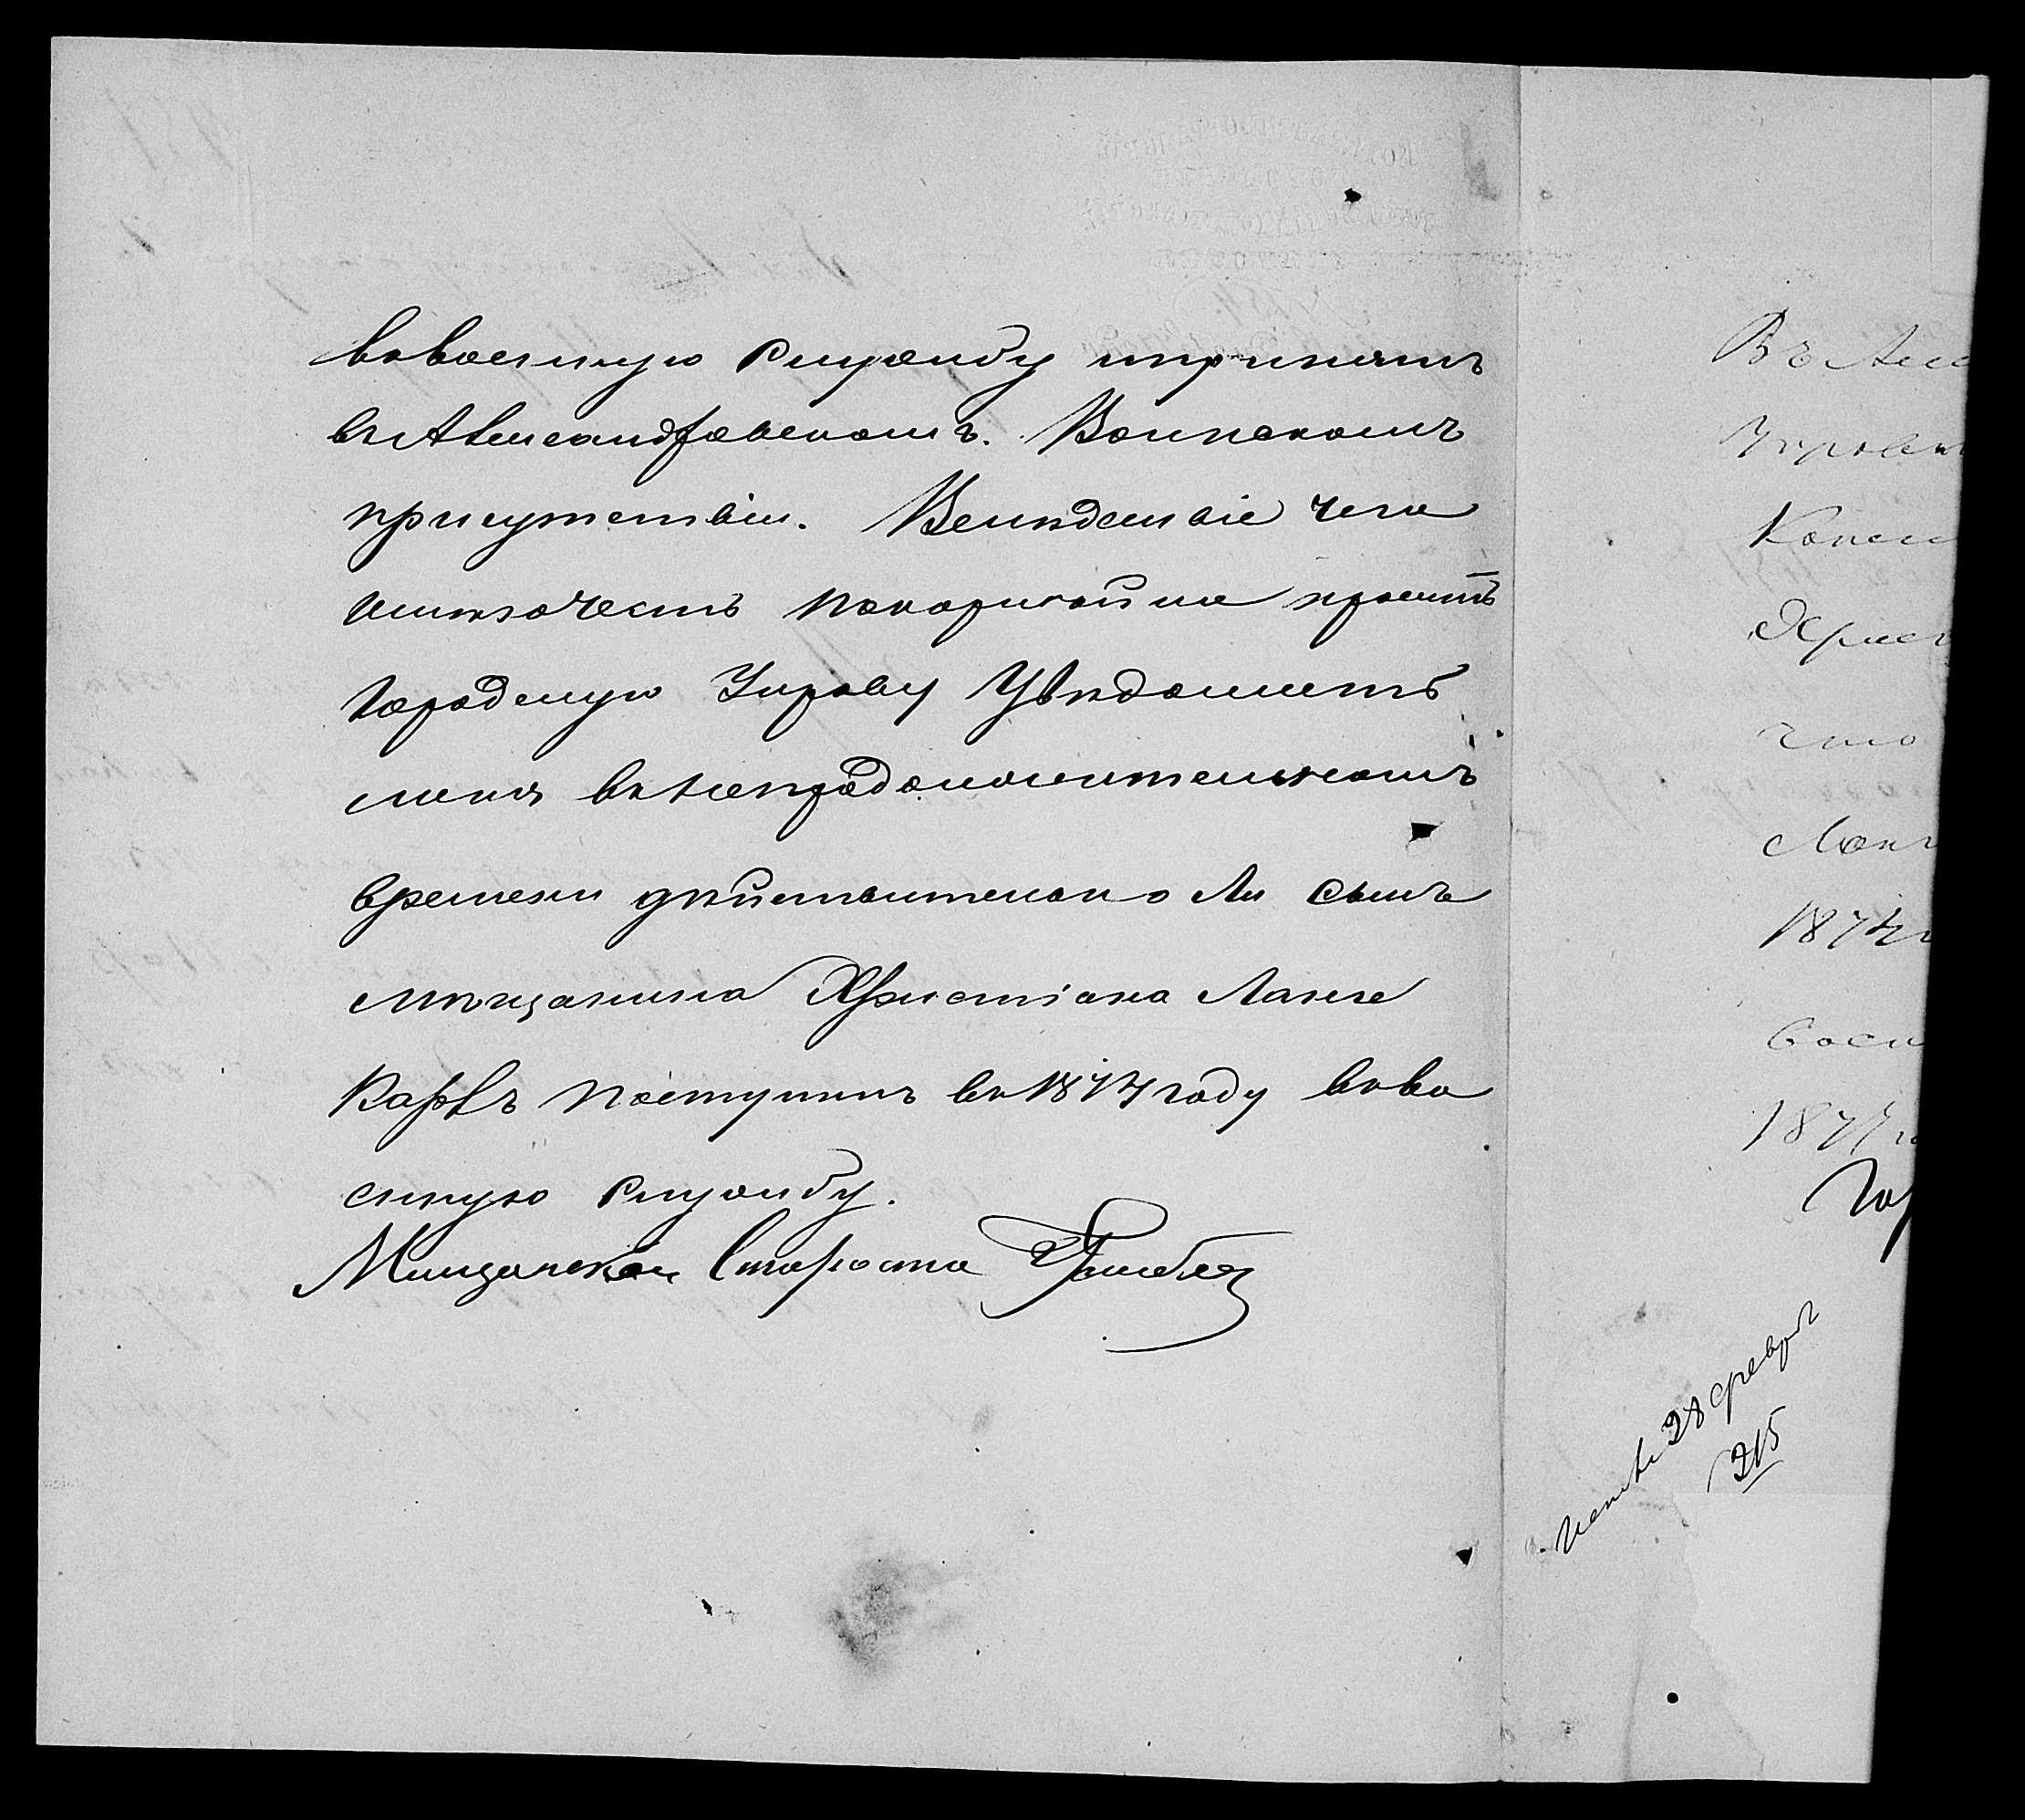 ввоенную службу ипринятъ
въ Александровскомъ. Воинскомъ
присутствіи. Вслѣдствіе чего
имѣю честь покорнѣйше просить
городскую Управу Увѣдомить
меня внепродолжительномъ
времени дѣйствительно Ли сынъ
мѣщанина Христіана Ланге
Карлъ поступилъ въ 1874 году вво
енную службу.
Мищанскои Староста
Въ Алек
Управы
Христ
что
Ланг
1874
1877
Гор
28 февр
215